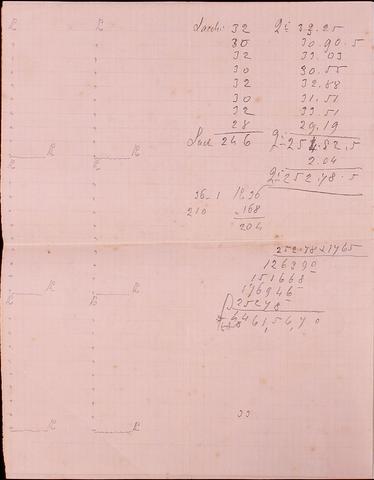 Sacchi 32 Q.i 33.25
30 30.90.5
32 33.03
30 30.55
32 32.88
30 31.51
32 33.51
28 29.19
246 Q.i 254.82.5
2.04
Q.i 252.78.5
36-1 36
210 168
204
252.78 x 1765
126390
151668
176946
25278
4461,56,70
33